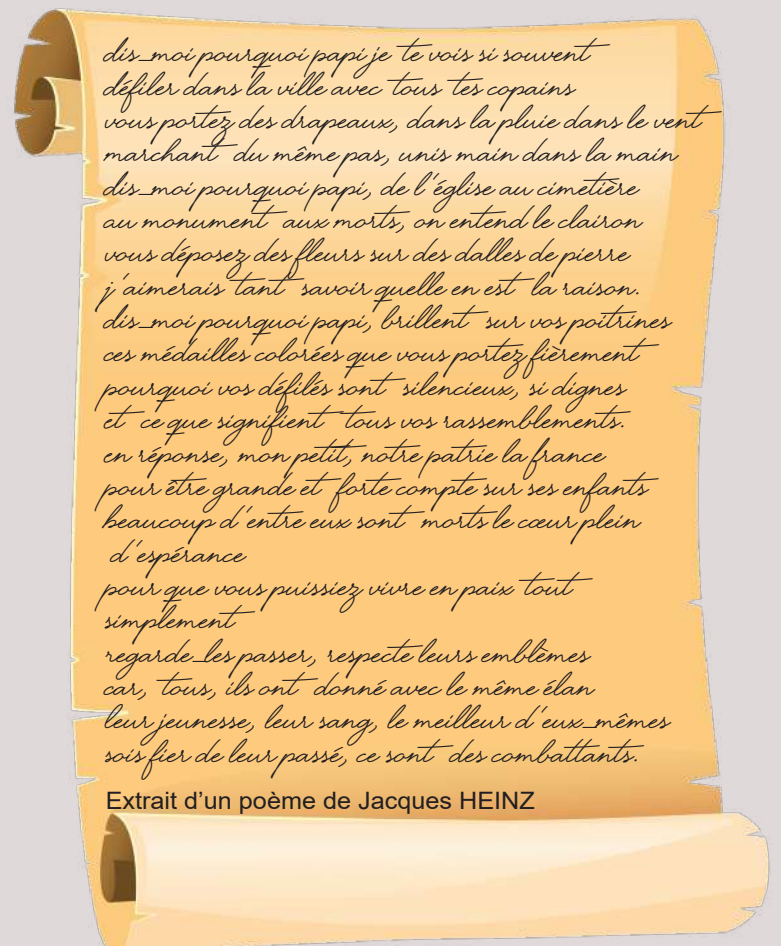 dis-moi pourquoi papi je te vois si souvent
défiler dans la ville avec tous tes copains
vous portez des drapeaux, dans la pluie dans le vent
marchant du même pas, unis main dans la main
dis-moi pourquoi papi, de l'église au cimetière
au monument aux morts, on entend le clairon
vous déposez des fleurs sur des dalles de pierre
j'aimerais tant savoir quelle en est la raison.
dis-moi pourquoi papi, brillent sur vos poitrines
ces médailles colorées que vous portez fièrement
pourquoi vos défilés sont silencieux, si dignes
et ce que signifient tous vos rassemblements.
en réponse, mon petit, notre patrie la france
pour être grande et forte compte sur ses enfants
beaucoup d'entre eux sont morts le cœur plein
d'espérance
pour que vous puissiez vivre en paix tout
simplement
regarde-les passer, respecte leurs emblèmes
car, tous, ils ont donné avec le même élan
leur jeunesse, leur sang, le meilleur d'eux-mêmes
sois fier de leur passé, ce sont des combattants.
Extrait d'un poème de Jacques HEINZ